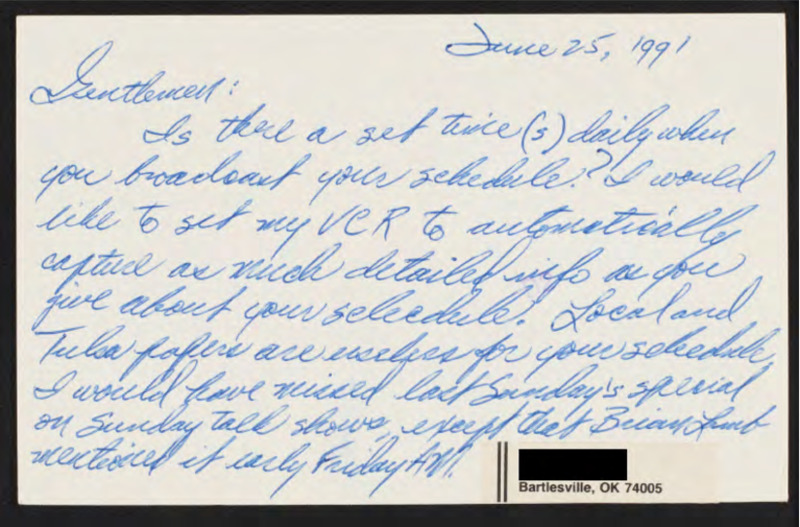 June 25, 1991
Gentlemen:
Is there a set time(s) daily when
you broadcast your schedule? I would
like to set my VCR to automatically
capture as much detailed info as you
give about your schedule. Local and
Tulsa papers are useless for your schedule.
I would have missed last Sunday's special
on Sunday talk shows, except that Brian Lamb
mentioned it early Friday AM.
Bartlesville, OK 74005